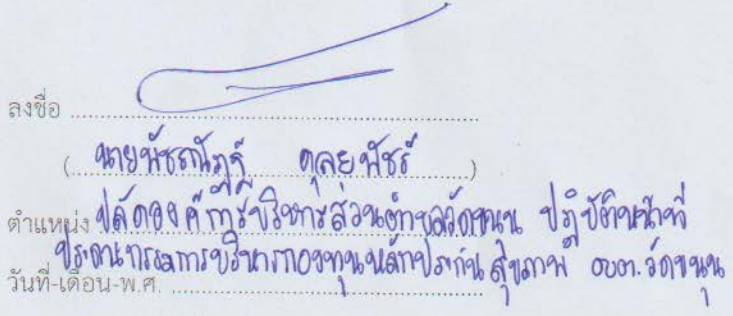 ลงชื่อ ................................................
(นายพัชรณัฏฐ์ ดุลยพัชร์)
ตำแหน่ง ปลัดองค์การบริหารส่วนตำบลวัดขนุน ปฏิบัติหน้าที่
ประธานกรรมการบริหารกองทุนหลักประกันสุขภาพ อบต.วัดขนุน
วันที่-เดือน-พ.ศ. ................................................